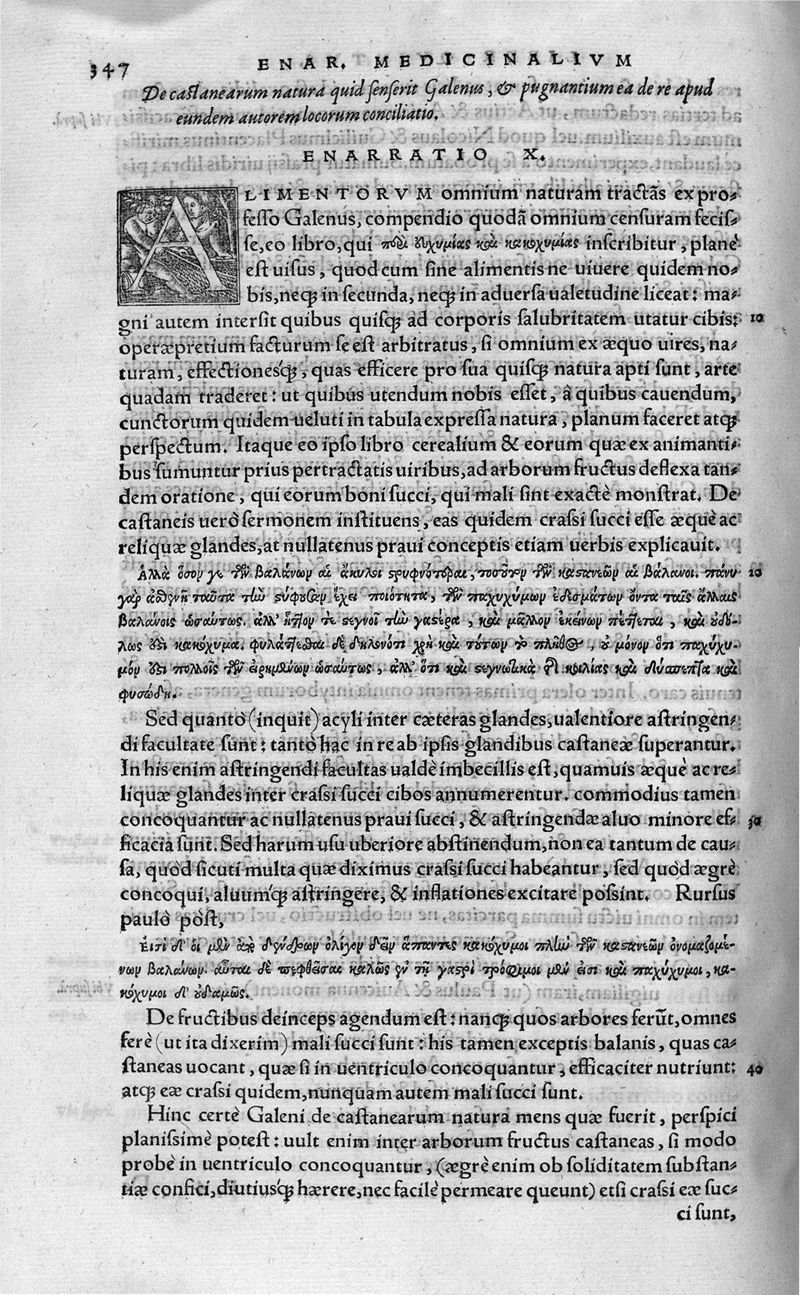 347 ENAR. MEDICINALIVM
De castanearum natura quid senserit Galenus, & pugnantium ea de re apud
eundem autorem locorum conciliatio.
ENARRATIO X.
ALIMENTORVM omnium naturam tractãs ex pro-
fesso Galenus, compendio quodã omnium censuram fecis-
se, eo libro, qui περὶ εὐχυμίας καὶ κακοχυμίας inscribitur, planè
est uisus, quod cum sine alimentis ne uiuere quidem no-
bis, neq; in secunda, neq; in aduersa ualetudine liceat: ma-
gni autem intersit quibus quisq; ad corporis salubritatem utatur cibis: 10
operæpretium facturum se est arbitratus, si omnium ex æquo uires, na-
turam, effectionesq;, quas efficere pro sua quisq; natura apti sunt, arte
quadam traderet: ut quibus utendum nobis esset, à quibus cauendum,
cunctorum quidem ueluti in tabula expressa natura, planum faceret atq;
perspectum. Itaque eo ipso libro cerealium & eorum quæ ex animanti-
bus sumuntur prius pertractatis uiribus, ad arborum fructus deflexa tan-
dem oratione, qui eorum boni succi, qui mali sint exactè monstrat. De
castaneis uerò sermonem instituens, eas quidem crassi succi esse æquè ac
reliquæ glandes, at nullatenus praui conceptis etiam uerbis explicauit.
Ἀλλὰ ὅσον γε τῶν βαλάνων αἱ ἄκυλοι στρυφνότεραι, τοσοῦτον τῶν καστανεῶν αἱ βάλανοι. πάνυ 20
γὰρ ἀσθενῆ ταῦτα τὴν στύφουσαν ἔχει ποιότητα, τῶν παχυχύμων ἐδεσμάτων ὄντα ταῖς ἄλλαις
βαλάνοις ὡσαύτως. ἀλλ' ἧττόν τε στεγνοῖ τὴν γαστέρα, καὶ μᾶλλον ἐκείνων πέττεται, καὶ οὐδό-
λως ἐστὶ κακόχυμα. φυλάττεσθαι δὲ δηλονότι χρὴ καὶ τούτων τὸ πλῆθος, οὐ μόνον ὅτι παχύχυ-
μόν ἐστι πολλοῖς τῶν εἰρημένων ὡσαύτως, ἀλλ' ὅτι καὶ στεγνωτικὰ τῆς κοιλίας καὶ δύσπεπτα καὶ
φυσώδη.
Sed quantò (inquit) acyli inter cæteras glandes, ualentiore astringen-
di facultate sunt: tantò hac in re ab ipsis glandibus castaneæ superantur.
In his enim astringendi facultas ualdè imbecillis est, quamuis æquè ac re-
liquæ glandes inter crassi succi cibos annumerentur. commodius tamen
concoquantur ac nullatenus praui succi, & astringendæ aluo minore ef- 30
ficacia sunt. Sed harum usu uberiore abstinendum, non ea tantum de cau-
sa, quòd sicuti multa quæ diximus crassi succi habeantur, sed quòd ægrè
concoqui, aluumq; astringere, & inflationes excitare possint. Rursus
paulò pòst,
Εἰσὶ δ' οἱ μὲν ἀπὸ δένδρων ὀλίγου δεῖν ἅπαντες κακόχυμοι πλὴν τῶν καστανεῶν ὀνομαζομέ-
νων βαλάνων. αὗται δὲ πεφθεῖσαι καλῶς ἐν τῇ γαστρὶ τρόφιμοι μέν εἰσι καὶ παχύχυμοι, κα-
κόχυμοι δ' οὐδαμῶς.
De fructibus deinceps agendum est: nanq; quos arbores ferũt, omnes
ferè (ut ita dixerim) mali succi sunt: his tamen exceptis balanis, quas ca-
staneas uocant, quæ si in uentriculo concoquantur, efficaciter nutriunt: 40
atq; eæ crassi quidem, nunquam autem mali succi sunt.
Hinc certè Galeni de castanearum natura mens quæ fuerit, perspici
planissimè potest: uult enim inter arborum fructus castaneas, si modo
probè in uentriculo concoquantur, (ægrè enim ob soliditatem substan-
tiæ confici, diutiusq; hærere, nec facilè permeare queunt) etsi crassi eæ suc-
ci sunt,